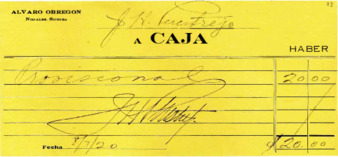 ALVARO OBREGON
NOGALES, SONORA
A CAJA
HABER
Provisional 20.00
Fecha 8/7/20 $20.00